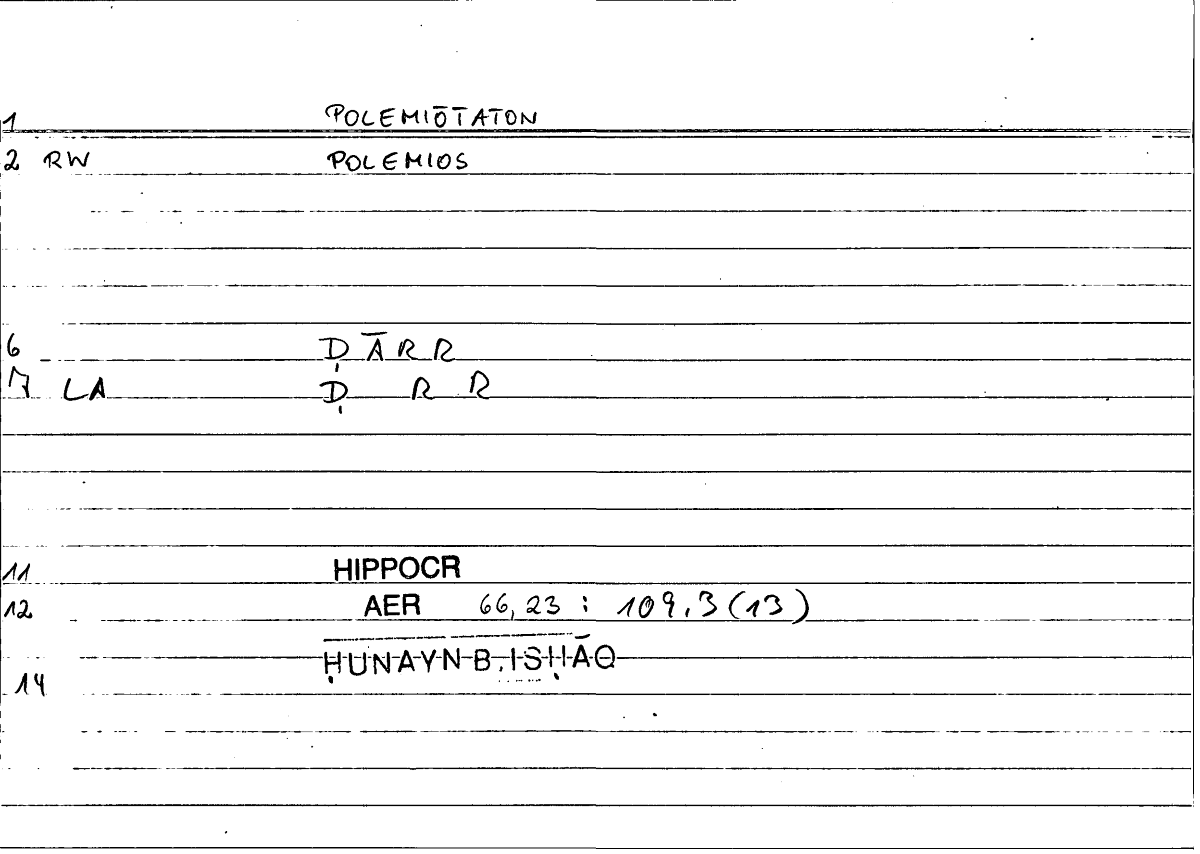 1 POLEMIŌTATON
2 RW POLEMIOS
6 ḌĀRR
7 LA Ḍ R R
11 HIPPOCR
12 AER 66,23 : 109,3 (13)
ḤUNAYN B. ISḤĀQ
14